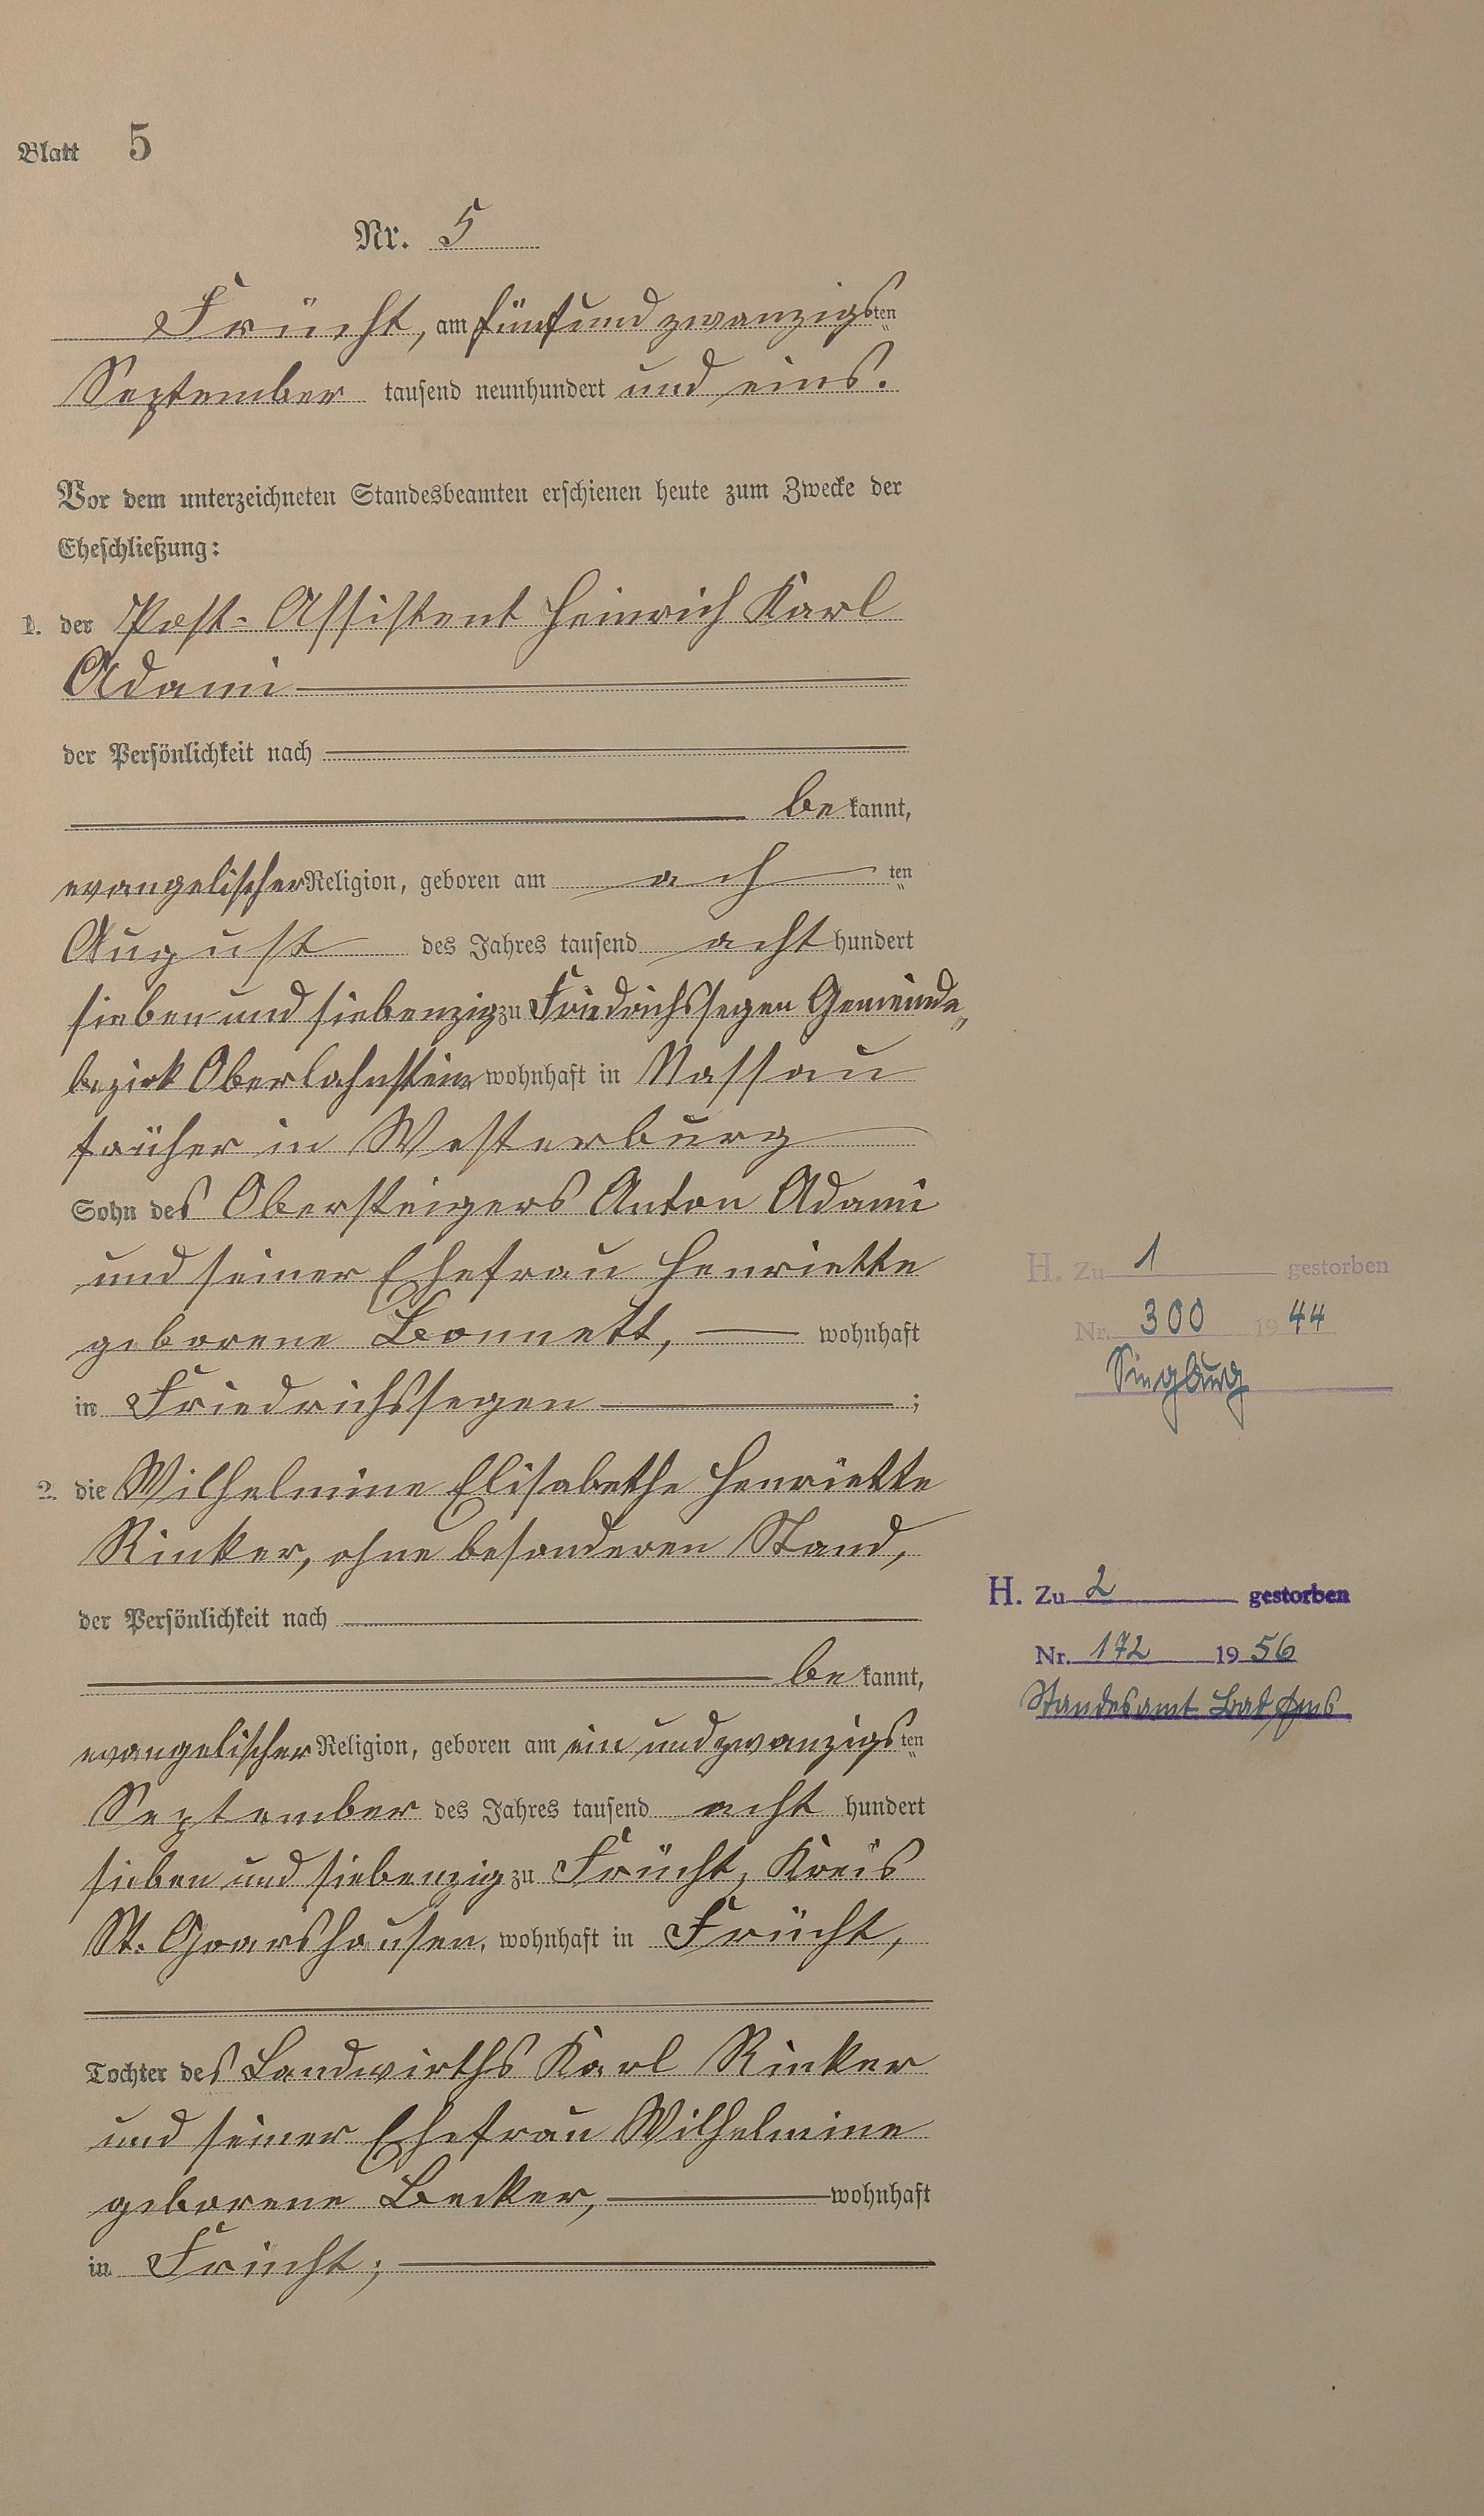 Blatt 5
Nr. 5
Frücht, am fünfundzwanzigsten
September tausend neunhundert und eins.
Vor dem unterzeichneten Standesbeamten erschienen heute zum Zwecke der
Eheschließung:
1. der Post-Assistent Heinrich Karl
Adami
der Persönlichkeit nach
bekannt,
evangelischer Religion, geboren am achten
August des Jahres tausend acht hundert
sieben und siebenzig zu Friedrichssegen Gemeinde-
bezirk Oberlahnstein wohnhaft in Nassau
früher in Westerburg
Sohn des Obersteigers Anton Adami
und seiner Ehefrau Henriette
geborene Bonnett, wohnhaft
in Friedrichssegen ;
2. die Wilhelmine Elisabethe Henriette
Rinker, ohne besonderen Stand,
der Persönlichkeit nach
bekannt,
evangelischer Religion, geboren am ein und zwanzigsten
September des Jahres tausend acht hundert
sieben und siebenzig zu Frücht, Kreis
St. Goarshausen, wohnhaft in Frücht,
Tochter des Landwirths Karl Rinker
und seiner Ehefrau Wilhelmine
geborene Becker, wohnhaft
in Frücht;
H. Zu 1 gestorben
Nr. 300 1944
Siegburg
H. Zu 2 gestorben
Nr. 172 1956
Standesamt Bad Ems